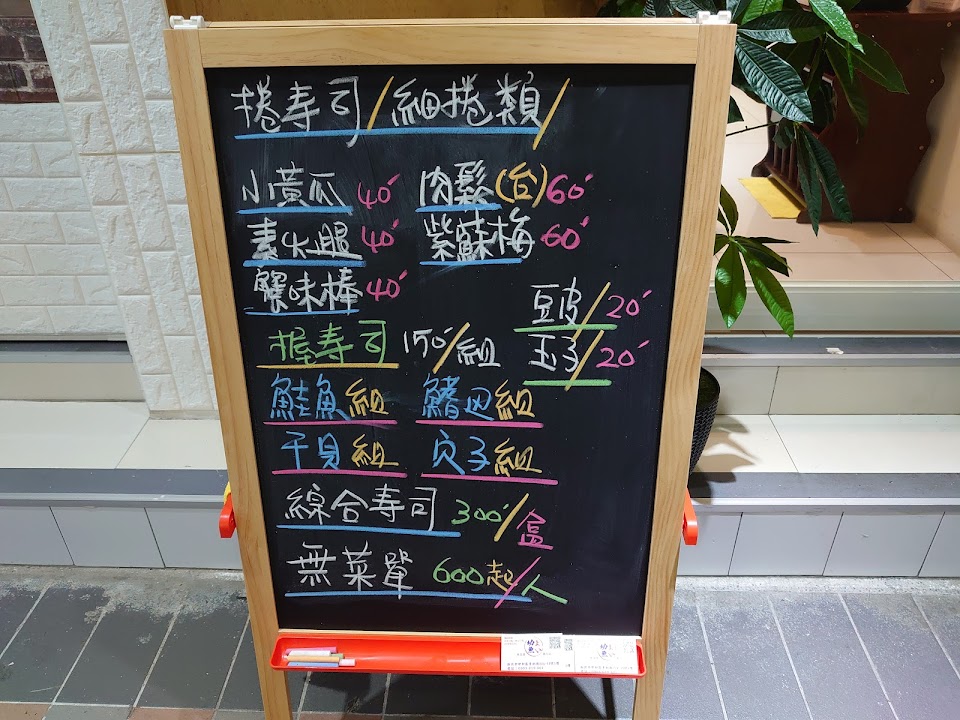 捲寿司/細捲類/
小黃瓜 40' 肉鬆(台)60'
素火腿 40' 紫蘇梅 60'
蟹味棒 40'
豆皮/20'
握寿司 150'/組 玉子/20'
鮭魚組 鰭边組
干貝組 穴子組
綜合寿司 300'/盒
無菜單 600起/人